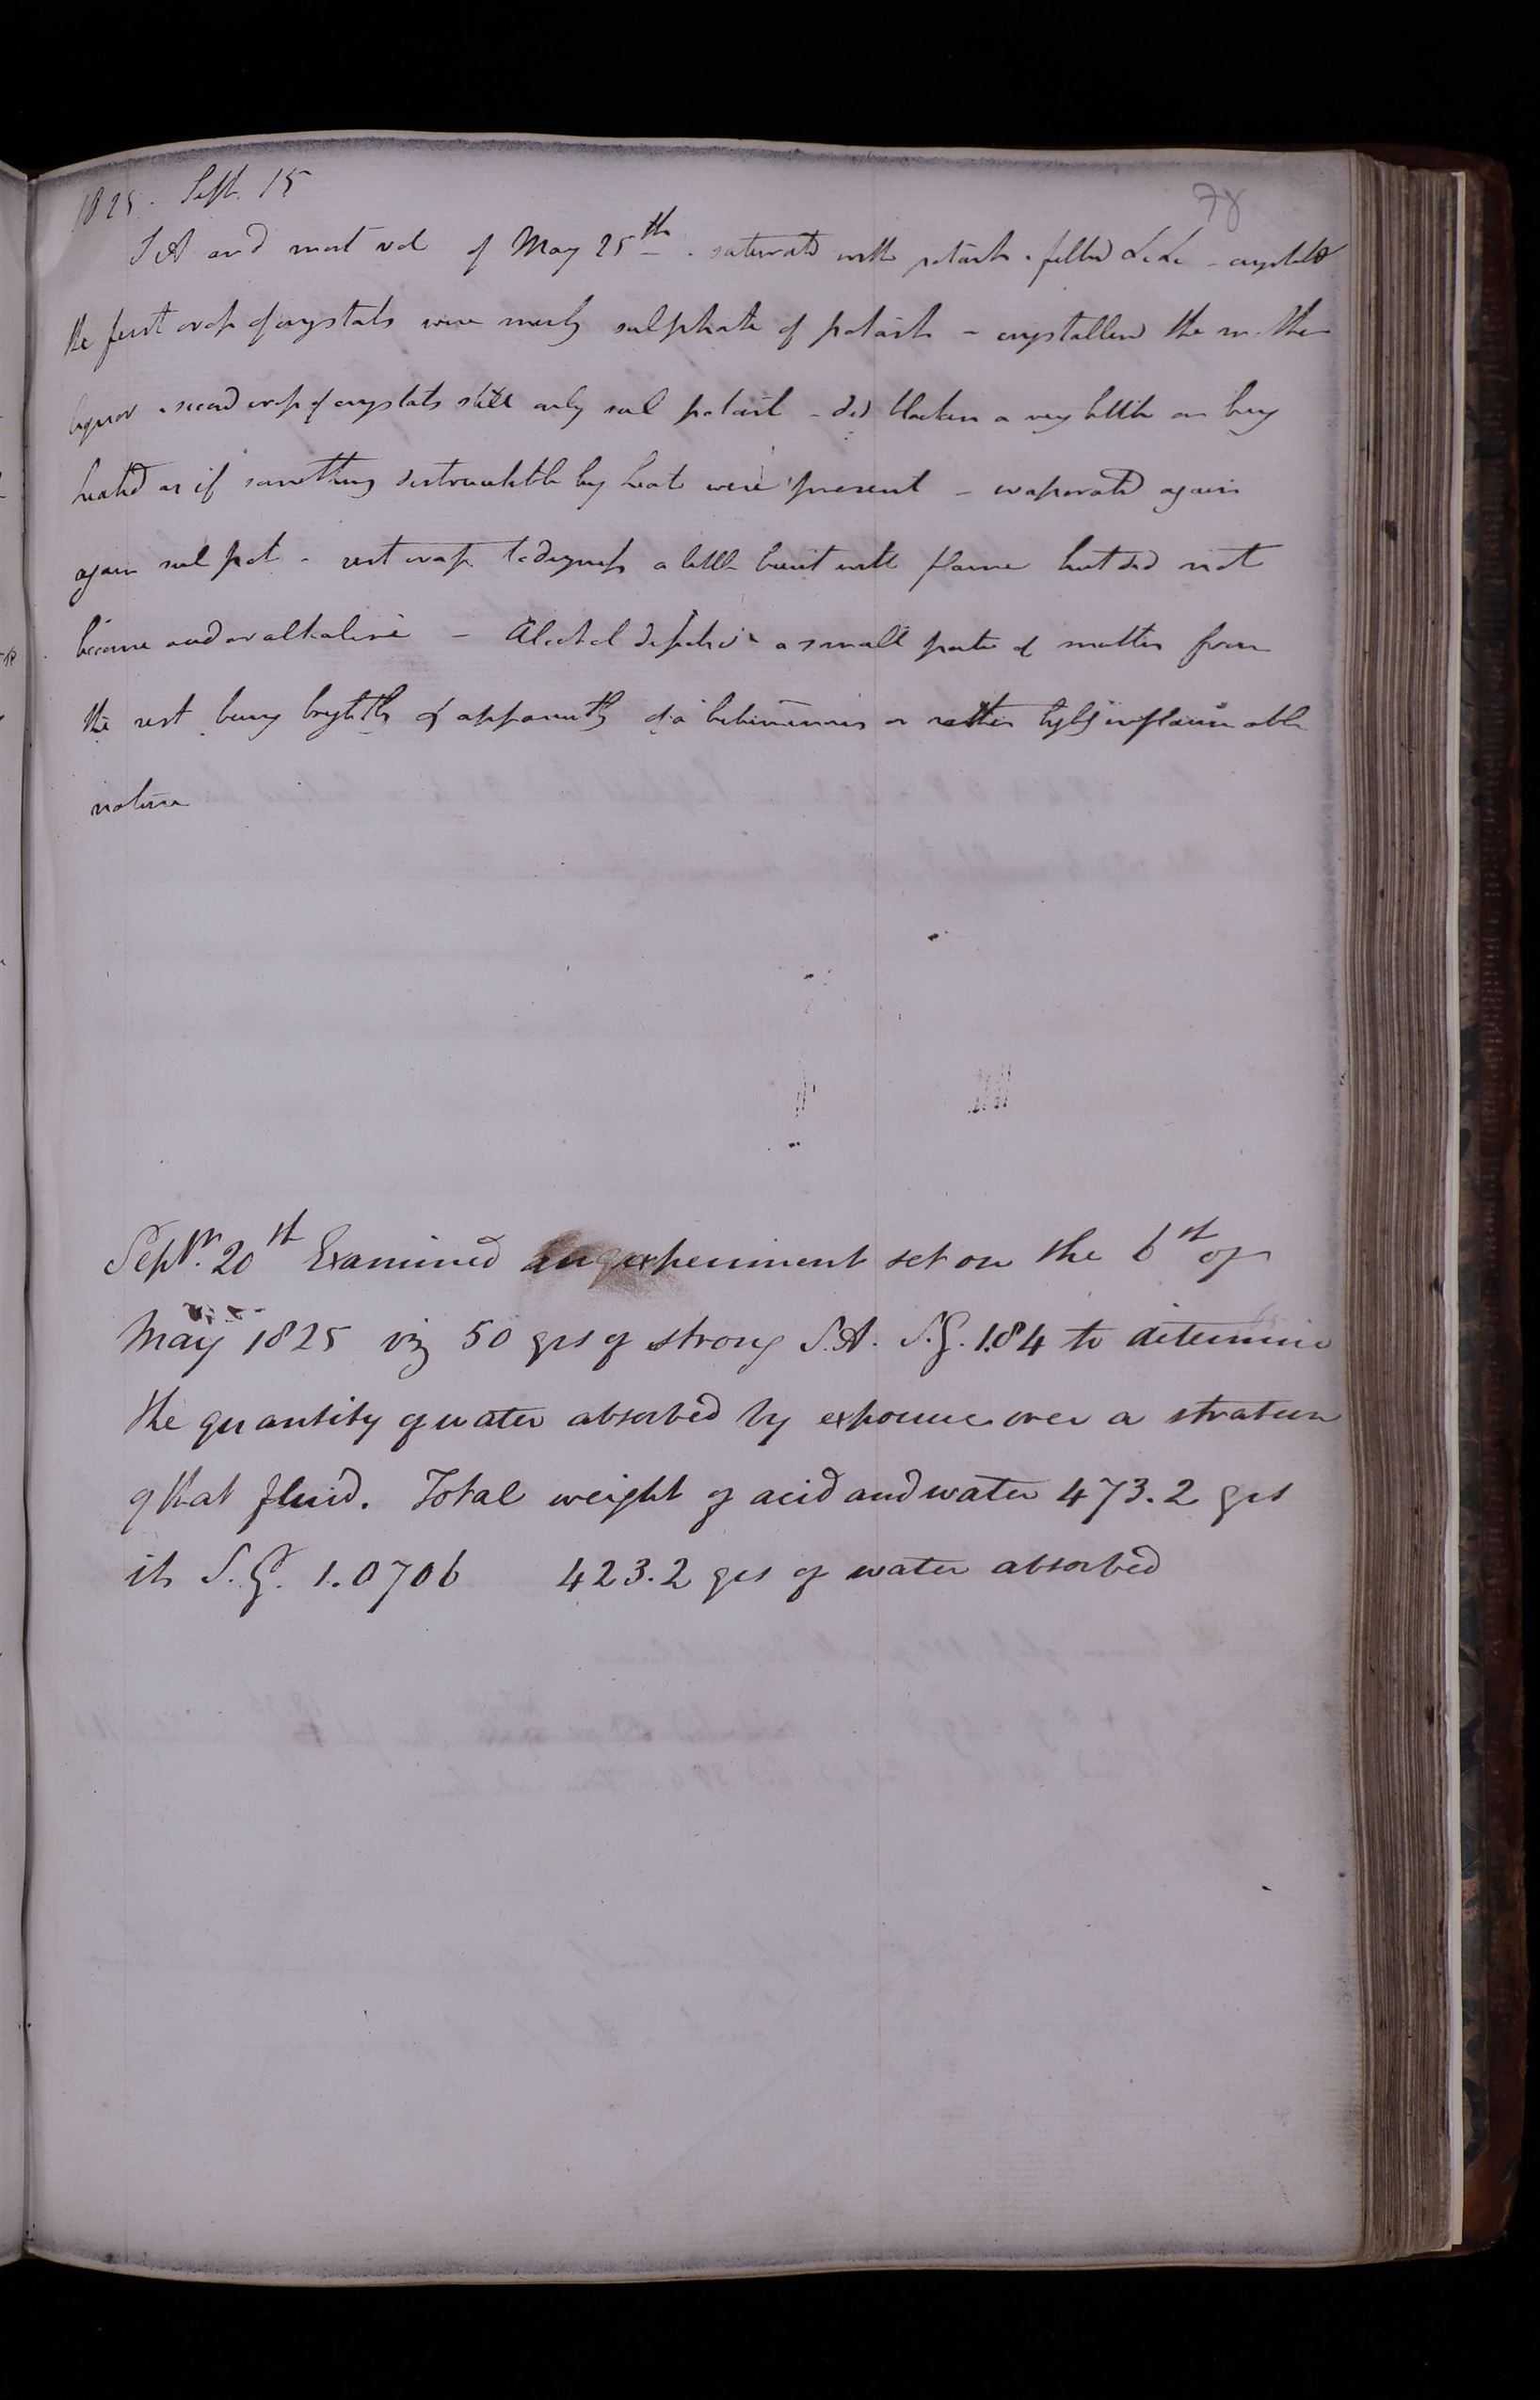 78
1825. Sept. 15
S A and most vol of May 25th. saturated with potash. filtered &c &c - crystalld
the first crop of crystals were merely sulphate of potash - crystallized the mother
liquor. second crop of crystals still only sul potash - did blacken a very little on being
heated as if something destructible by heat were present - evaporated again
again sul pot - rest evap to dryness a little burnt with flame but did not
become acid or alkaline - Alcohol a small part of matter from
the rest being & apparently of a bituminous or rather highly inflammable
nature
Septr. 20st Examined an experiment set on the 6st of
May 1825 viz 50 grs of strong S.A. S.G. 1.84 to determine
the quantity of water absorbed by exposure over a stratum
of that fluid. Total weight of acid and water 473.2 grs
its S.G. 1.0706 423.2 grs of water absorbed